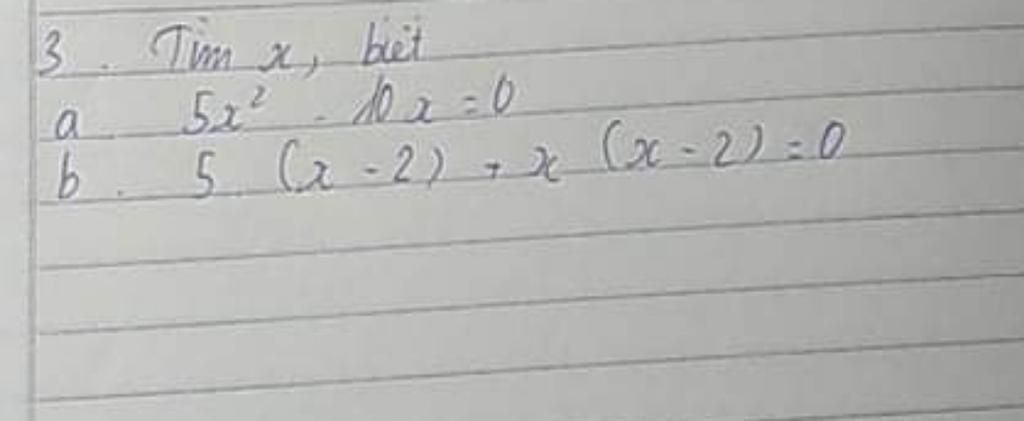 3. Tìm x, biết
a. 5x² - 10x = 0
b. 5. (x - 2) + x (x - 2) = 0